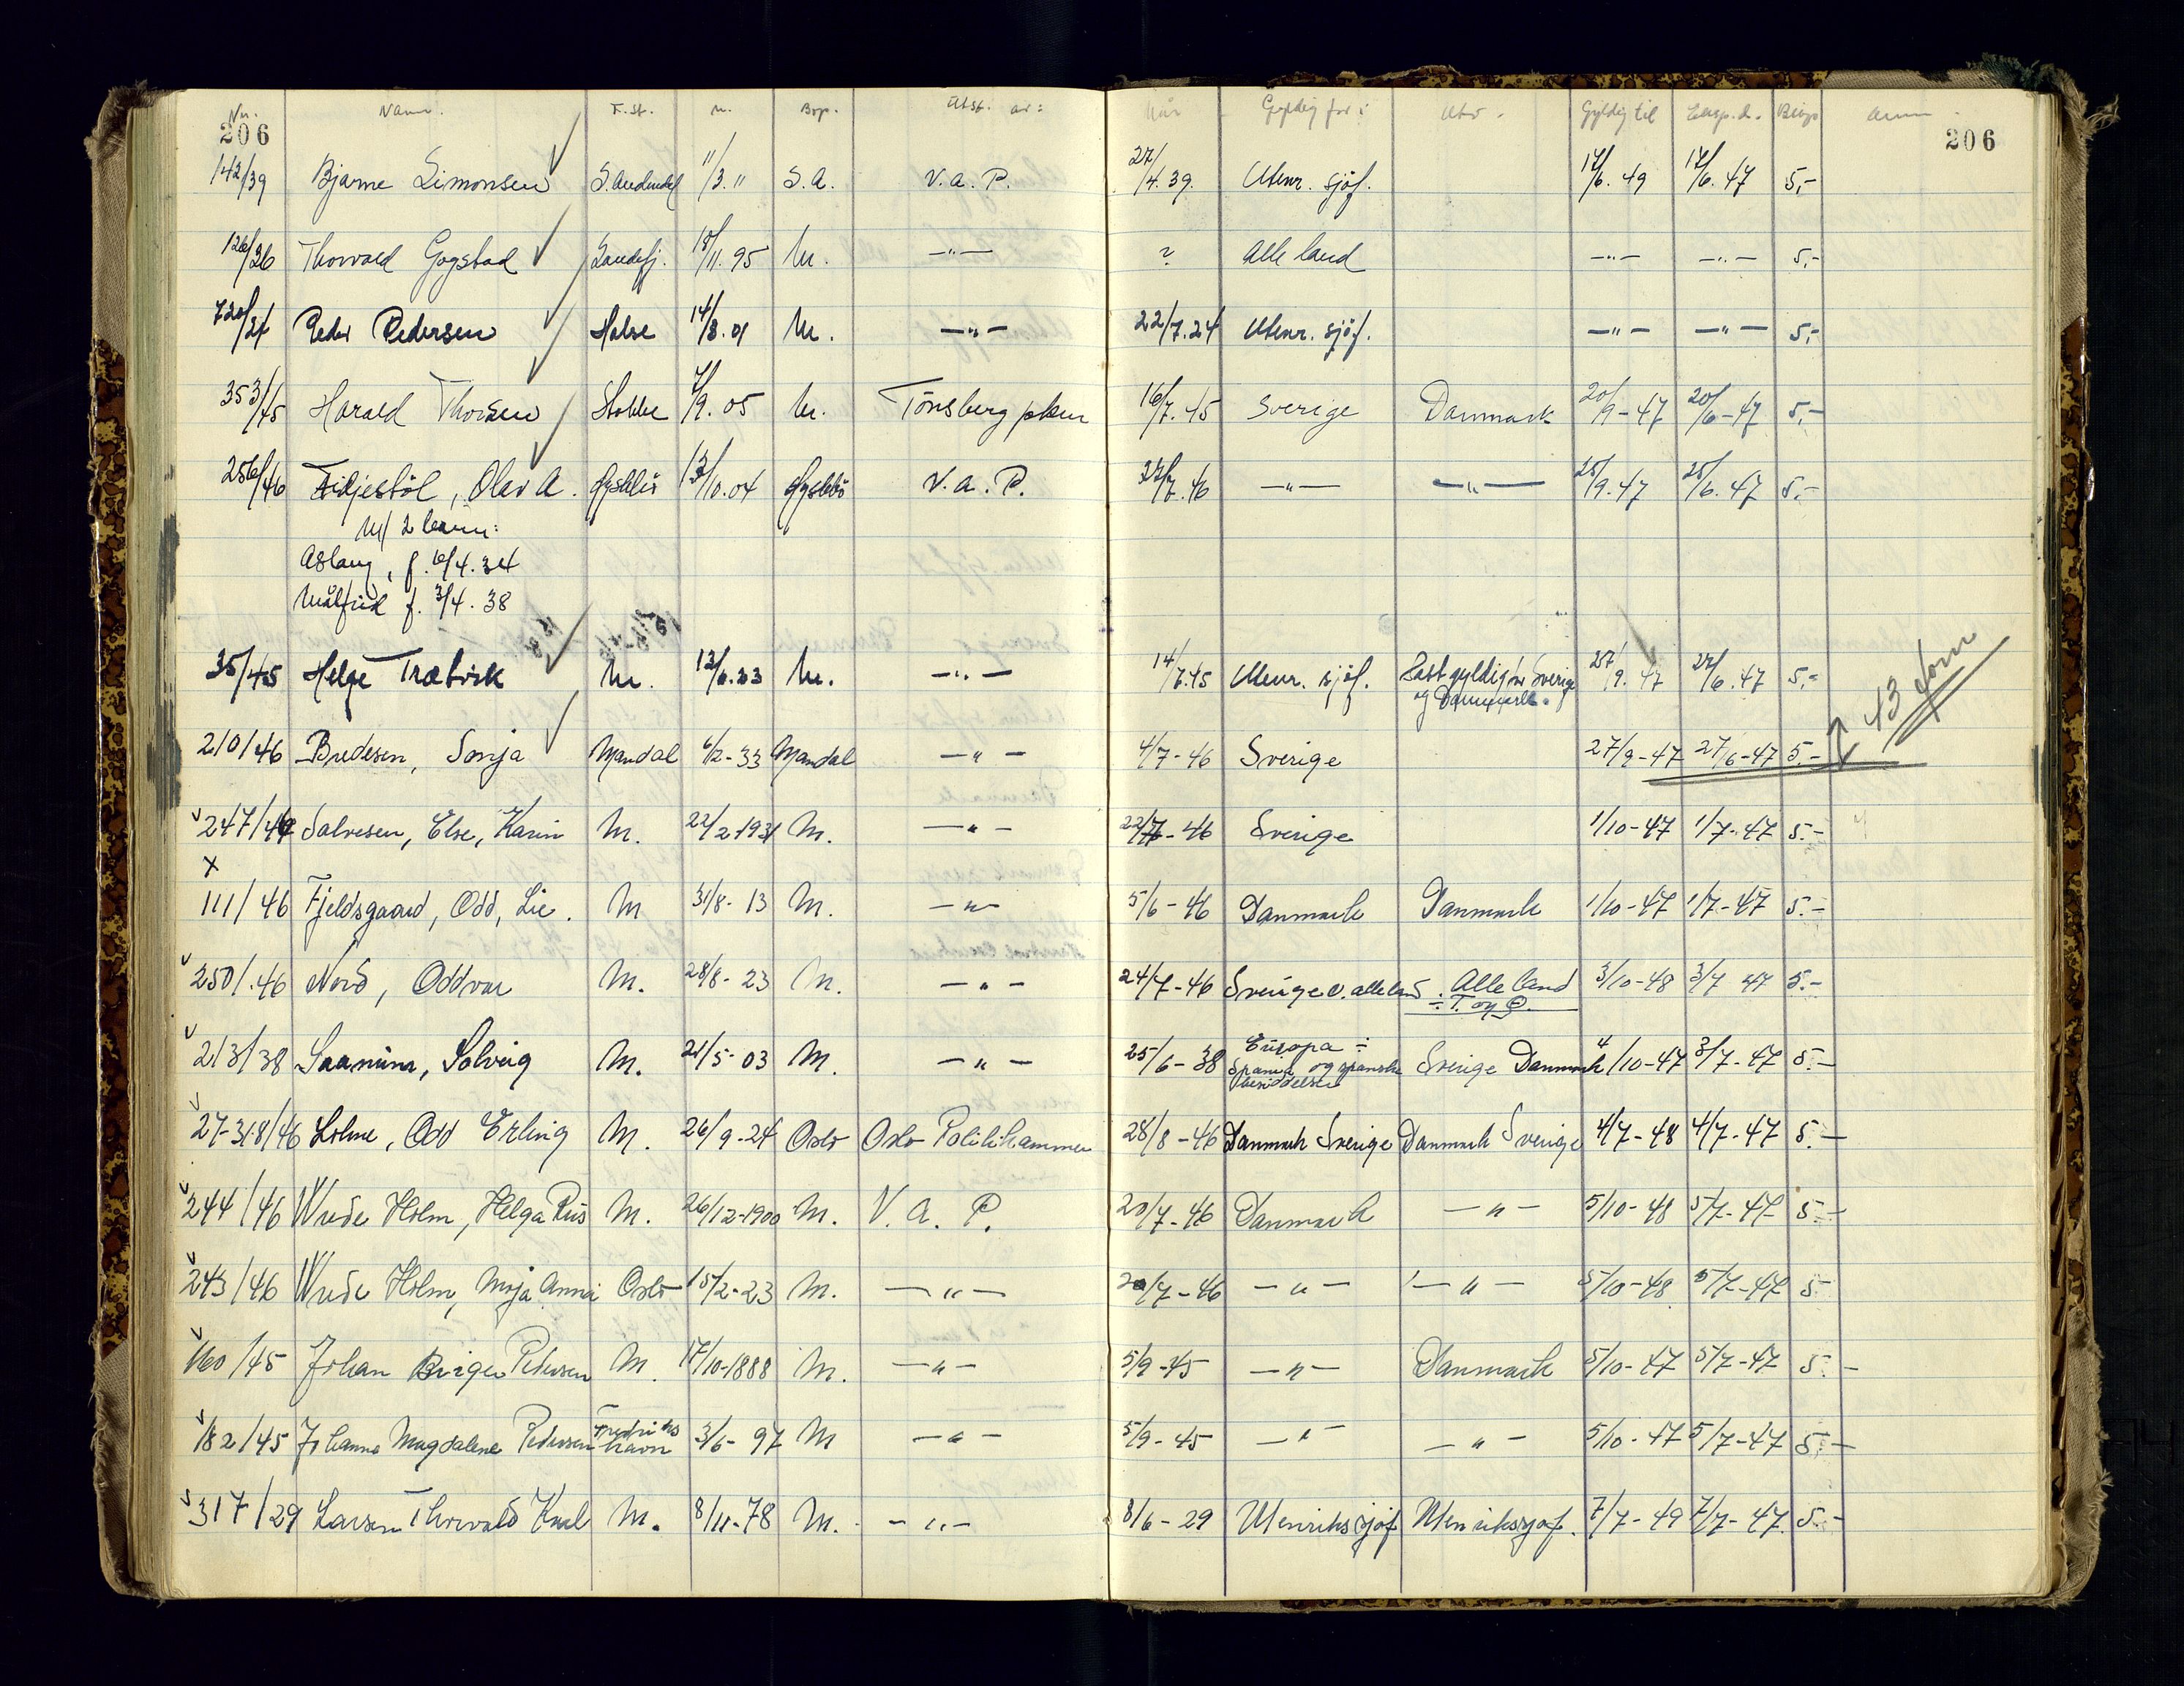 Nr. Namn. F.st. n. Bop. Utst. av: Når Gyldig for: Utv. Gyldig til Eksp.d. Beløp anm
206 206
142/39 Bjarne Simonsen 11/3.11 S.A. V.a.P. 27/4.39. Utenr. sjöf. 17/6.49 17/6.47 5,-
126/26 Thorvald Gogstad Sandefj. 18/11.95 M. —"— ? Alle land —"— —"— 5,-
Peder Pedersen Halse 14/8.01 M. —"— 22/7.24 Utenr. sjöf. —"— —"— 5,-
353/45 Harald Thorsen 4/9.05 M. Tönsberg pkm 16/7.45 Sverige Danmark 20/9-47 20/6-47 5,-
256/46 Fidjestöl, Olav A. 13/10.04 V.a.P. —"— —"— 25/9.47 25/6.47 5,-
M/ 2 barn:
Aslaug, f. 16/4.34
Målfrid f. 3/4.38
35/45 Helge Trædvik M. 12/6.23 M. —"— 14/7.45 Utenr. sjöf. Påst gyldig for Sverige 27/9.47 27/6.47 5,-
og Danmark.
43 dom
210/46 Bredesen, Sonja Mandal 6/2-33 Mandal —"— 4/7-46 Sverige 27/9-47 27/6-47 5.-
247/46 Salvesen, Else, Karin M. 22/2-1931 M. —"— 22/7-46 Sverige 1/10-47 1/7-47 5.-
x
111/46 Fjeldsgaard, Odd, Lie. M 31/8-13 M. —"— 5/6-46 Danmark Danmark 1/10-47 1/7-47 5.-
250/46 Nord, Oddvar M. 28/8-23 M. —"— 24/7-46 Sverige v. alle land : Alle land 3/10-48 3/7 47 5.-
÷ T. og J.
213/38 Saanum, Solveig M. 21/5-03 M. —"— 25/6-38 Europa ÷ Sverige Danmark 4/10-47 3/7-47 5.-
Spania og spanske
besiddelser
27318/46 Holme, Odd Erling M. 26/9-24 Oslo Oslo Politikammer 28/8-46 Danmark Sverige Danmark Sverige 4/7-48 4/7-47 5.-
244/46 Wrede Holm, Helga Riis M. 26/12-1900 M. V.A.P. 20/7-46 Danmark —"— 5/10-48 5/7-47 5.-
243/46 Wrede Holm, Moja Anni Oslo 15/2-23 M. —"— 20/7-46 —"— —"— 5/10-48 5/7-47 5.-
160/45 Johan Birger Pedersen M. 17/10-1888 M. —"— 5/9-45 —"— Danmark 5/10-47 5/7-47 5.-
182/45 Johanne Magdalene Pedersen Fredrikshavn 3/6-97 M —"— 5/9-45 —"— —"— 5/10-47 5/7-47 5.-
317/29 Larsen Thorvald Karl M. 8/11-78 M. —"— 8/6-29 Utenriks sjöf Utenrikssjöf. 7/7-49 7/7-47. 5.-